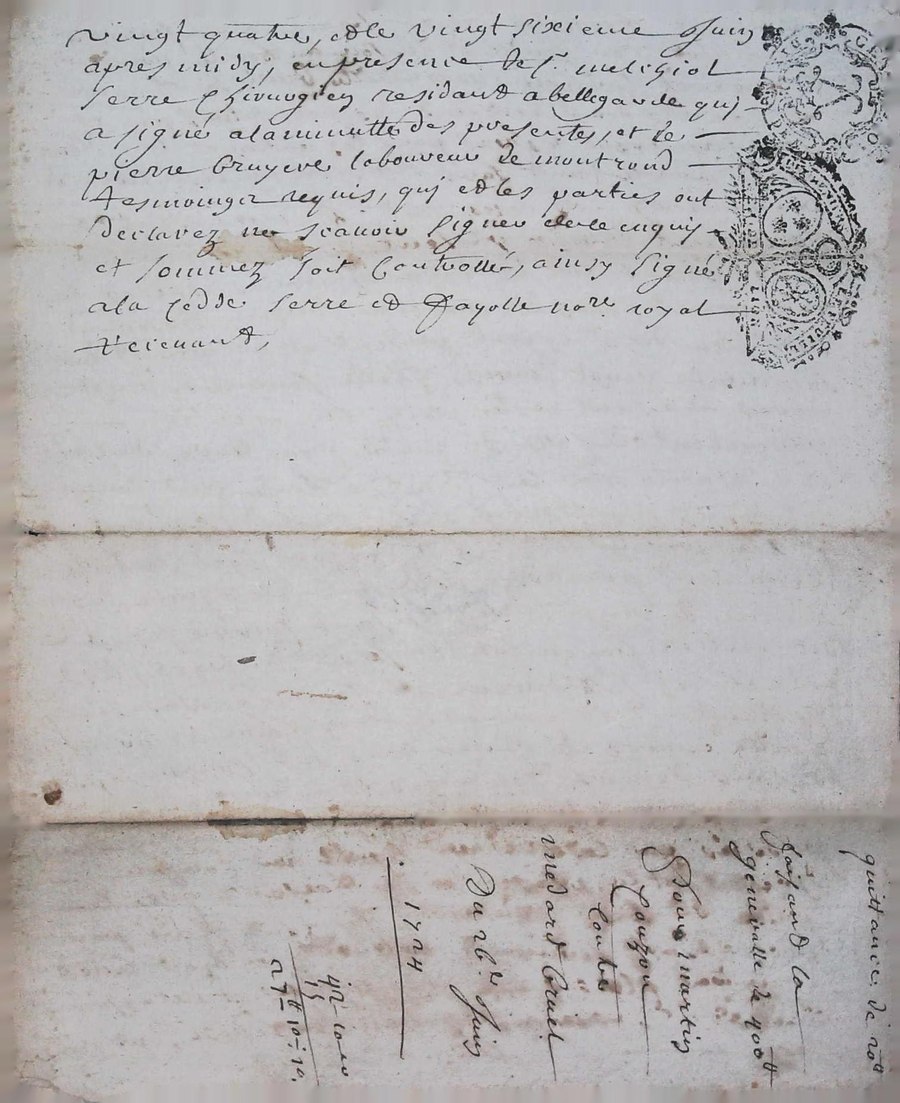 vingt quatre, et le vingt sixieme Juin
apres midy, en presence de Sr. melchiol
Serre Chirurgien residant a bellegarde qui
a signé a la minutte des presentes, et de
pierre bruyere laboureur de montrond
tesmoingz requis, qui et les parties ont
declarez ne scavoir signer de ce enquis
et sommez soit Controllé, ainsy signé
a la Cedde Serre et fayolle nore. royal
quittance, de 20tt
faisant la
generalle de 400tt
Pour martin
Couzon
Contre
medard bruiel
Du 26e Juin
1724